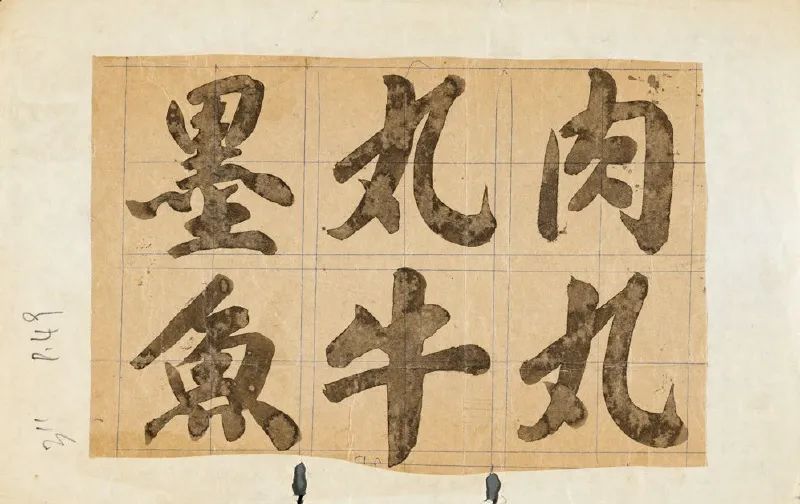 墨魚
丸牛
肉丸
3"
P.49